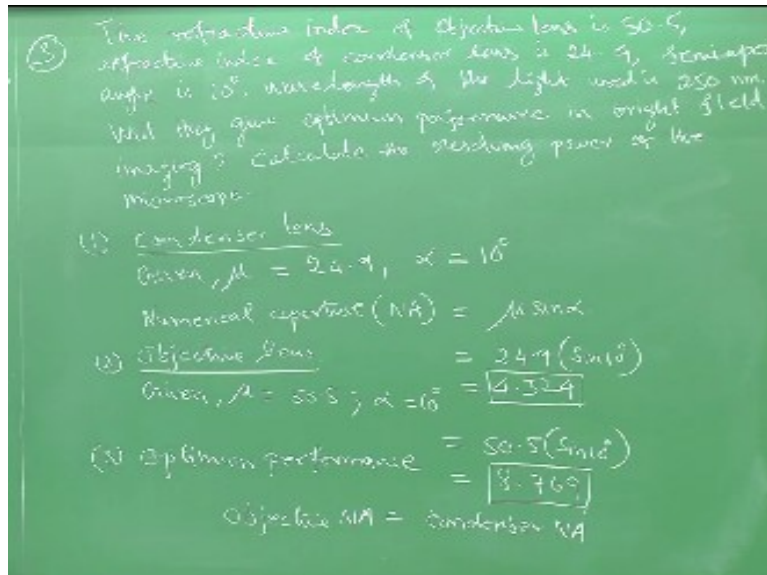 ③ The refractive index of objective lens is 50.5,
refractive index of condenser lens is 24.9, semi-aper
angle is 10°. wavelength of the light used is 250 nm.
Will they give optimum performance in bright field
imaging? Calculate the resolving power of the
microscope.
(1) Condenser lens
Given, μ = 24.9, α = 10°
Numerical aperture (NA) = μ sinα
(2) Objective lens = 24.9 (sin10°)
Given, μ = 50.5 ; α = 10° = 4.324
(3) Optimum performance = 50.5 (sin10°)
= 8.769
Objective NA = condenser NA